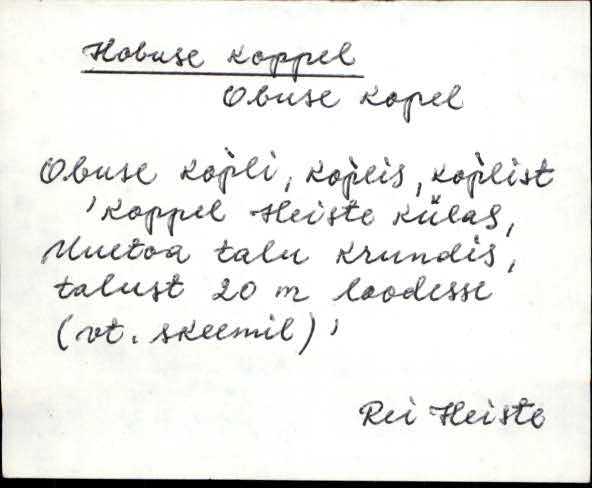 Hobuse koppel
Obuse kopel
Obuse kop̀li, kop̀lis, kop̀list
'koppel Heiste külas,
Uuetoa talu krundis,
talust 20 m loodesse
(vt. skeemil)'
Rei Heiste